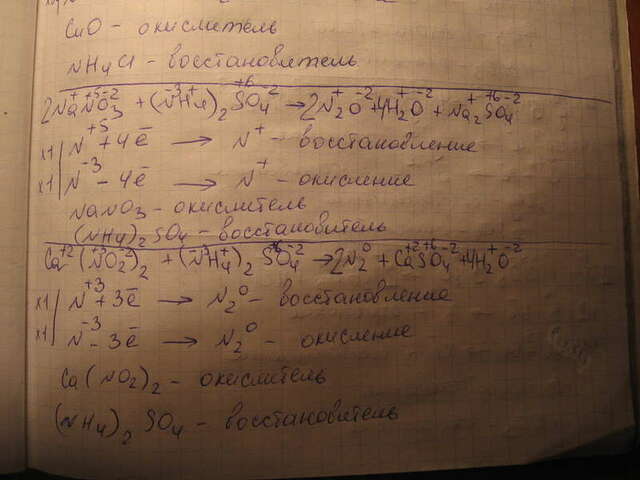 CuO - окислитель
NH4Cl - восстановитель
2Na⁺N⁺⁵O₃⁻² + (N⁻³H₄⁺)₂S⁺⁶O₄⁻² → 2N₂⁺O⁻² + 4H₂⁺O⁻² + Na₂⁺S⁺⁶O₄⁻²
x1 | N⁺⁵ + 4ē → N⁺ - восстановление
x1 | N⁻³ - 4ē → N⁺ - окисление
NaNO₃ - окислитель
(NH₄)₂SO₄ - восстановитель
Ca⁺²(N⁺³O₂⁻²)₂ + (N⁻³H₄⁺)₂S⁺⁶O₄⁻² → 2N₂⁰ + Ca⁺²S⁺⁶O₄⁻² + 4H₂⁺O⁻²
x1 | N⁺³ + 3ē → N₂⁰ - восстановление
x1 | N⁻³ - 3ē → N₂⁰ - окисление
Ca(NO₂)₂ - окислитель
(NH₄)₂SO₄ - восстановитель